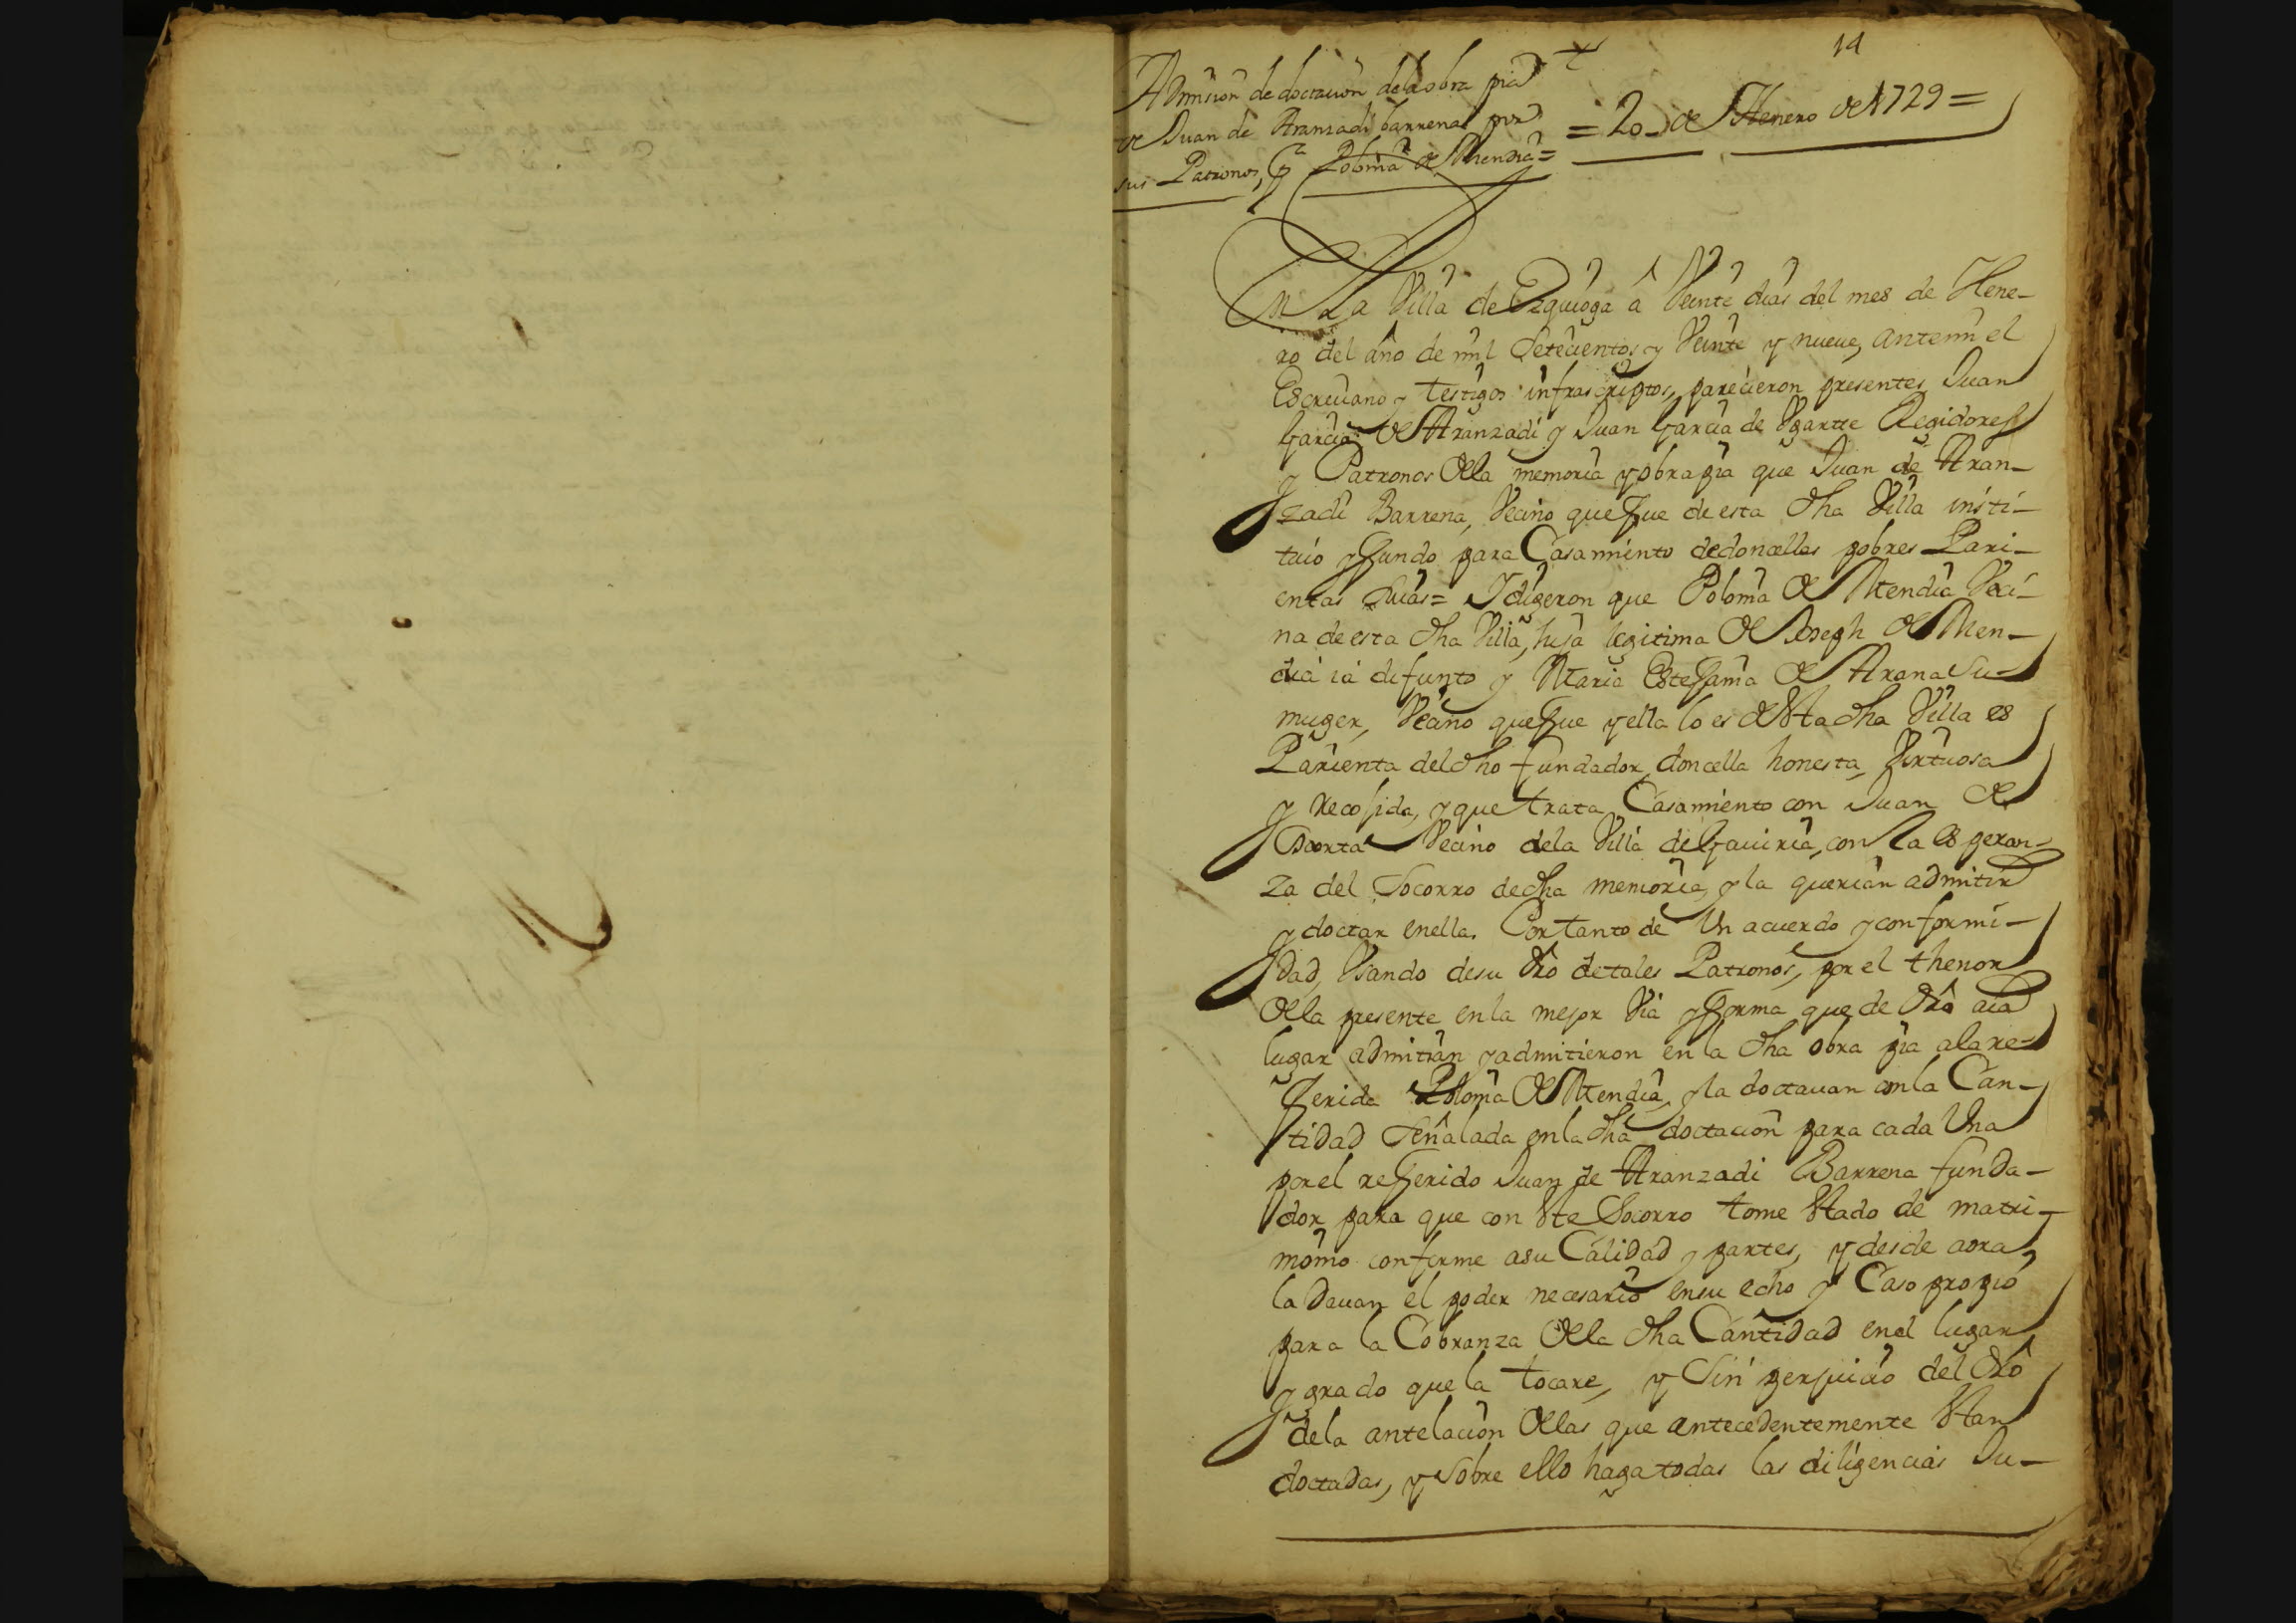 14
Admision de doctacion dela obra pia
de Juan de Aranzadi barrena por
sus Patronos, Pª Poloñia de Mendia=
= 20 de Henero de 1729 =
En La Villa de Ezquioga â Veinte dias del mes de Hene-
ro del año de mil Setecientos y Veinte y nueve, antemi el
Escrivano y testigos infrascriptos, parecieron presentes Juan
Garcia de Aranzadi y Juan Garcia de Vgarte Regidores
y Patronos de la memoria y obra pia que Juan de Aran-
zadi Barrena, Vecino que fue de esta dha Villa insti-
tuio y fundo para Casamiento de doncellas pobres Pari-
entas suias= I digeron que Poloñia de Mendia Veci-
na de esta dha Villa, hija legitima de Joseph de Men-
dia ia difunto y Maria Estefania de Arana Su
muger, Vecino que fue y ella lo es desta dha Villa es
Parienta del dho fundador, doncella honesta, Virtuosa
y recojida, y que trata Casamiento con Juan de
Vecino dela Villa de Gaviria, con la esperan-
za del Socorro de dha memoria, y la querian admitir
y doctar en ella. Por tanto de Un acuerdo y conformi-
dad, Vsando de su dro de tales Patronos, por el thenor
de la presente en la mejor Via y forma que de dro aia
lugar admitian y admitieron en la dha obra pia a la re-
ferida Poloñia de Mendia, y la doctavan con la Can-
tidad Señalada en la dha doctacion para cada Vna
por el referido Juan de Aranzadi Barrena funda-
dor para que con este Socorro tome estado de matri-
monio conforme a su Calidad y partes, y desde aora
la davan el poder necesario en su echo y Caso propio
para la Cobranza de la dha Cantidad en el lugar
y grado que la tocare, y Sin perjuicio del dro
de la antelacion de las que antecedentemente estan
doctadas, y Sobre ello haga todas las diligencias Ju-